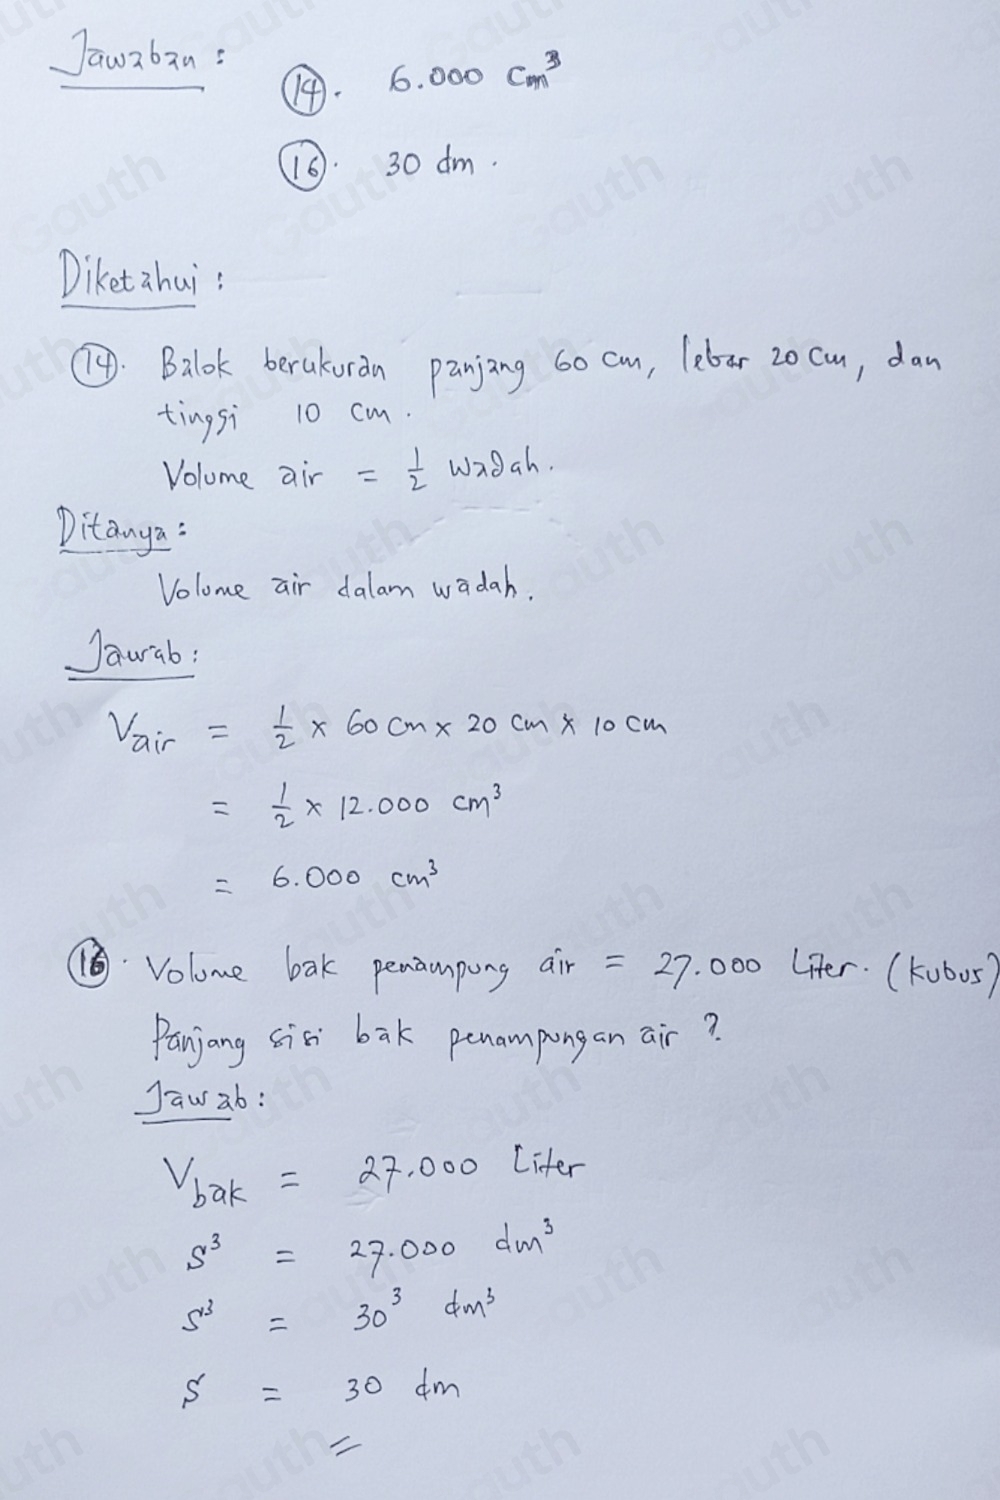 Jawaban :
14. 6.000 cm³
16. 30 dm.
Diketahui :
14. Balok berukuran panjang 60 cm, lebar 20 cm, dan
tinggi 10 cm.
Volume air = 1/2 wadah.
Ditanya :
Volume air dalam wadah.
Jawab :
Vair = 1/2 × 60 cm × 20 cm × 10 cm
= 1/2 × 12.000 cm³
= 6.000 cm³
16. Volume bak penampung air = 27.000 Liter. (kubus)
Panjang sisi bak penampungan air ?
Jawab :
Vbak = 27.000 Liter
S³ = 27.000 dm³
S³ = 30³ dm³
S = 30 dm
Gauth